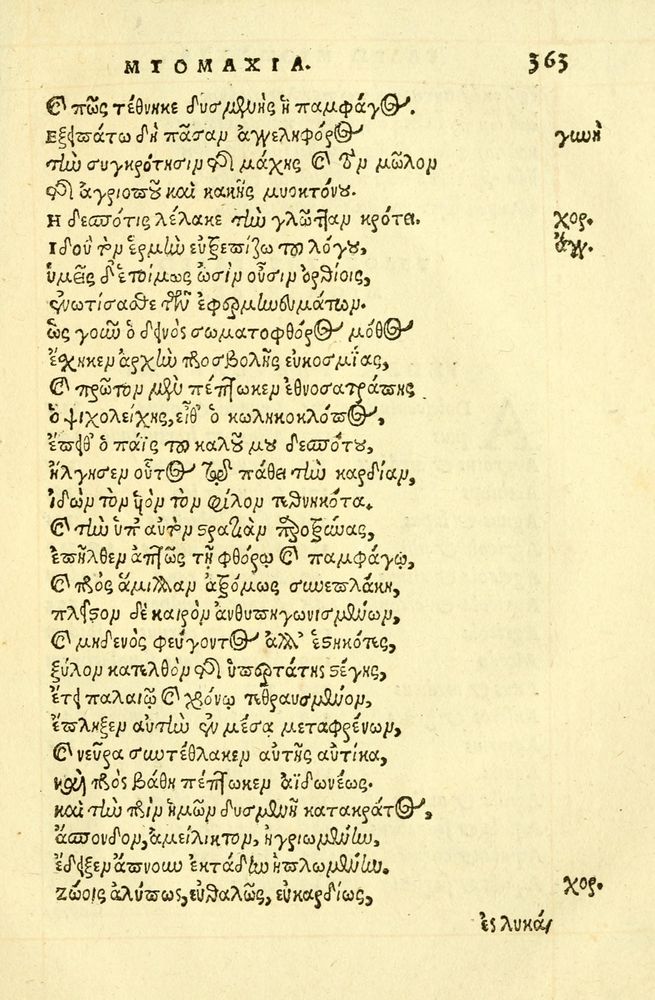 ΜΥΟΜΑΧΙΑ. 363
καὶ πῶς τέθνηκε δυσμενὴς ἡ παμφάγος.
Εξειπάτω δὴ πᾶσαν ἀγγεληφόρος γυνὴ
τὴν συγκρότησιν τῆς μάχης καὶ τὸν μῶλον
τῆς ἀγριοποῦ καὶ κακῆς μυοκτόνου.
Η δεσπότις λέλακε τὴν γλῶτταν κρότει. χορ.
Ιδοὺ τὸν εἱρμὸν ἐυξεπίζω τοῦ λόγου, ἄγγ.
ὑμεῖς δ' ἑτοίμως ὠσὶν οὖσιν ὀρθίοις,
ἐνωτίσασθε τῶν
ὡς γοῦν ὁ δεινὸς σωματοφθόρος μόθος
ἔσχηκεν ἀρχὴν προσβολῆς ἐυκοσμίας,
καὶ πρῶτον μὲν πέπτωκεν ἐθνοσατράπης
ὁ ψιχολείχης, εἶθ' ὁ κωληκοκλόπος,
ἔπειθ' ὁ παῖς τοῦ καλοῦ μου δεσπότου,
ἤλγησεν οὗτος τῷ πάθει τὴν καρδίαν,
ἰδὼν τὸν υἱὸν τὸν φίλον τεθνηκότα.
καὶ τὴν ὑπ' αὐτὸν στρατιὰν προξείνας,
ἐπῆλθεν ἀπτῶς τῇ φθόρῳ καὶ παμφάγῳ,
καὶ πρὸς ἅμιλλαν ἀξόμως συνεπλάκη,
πλεῖστον δὲ καιρὸν ἀνθυπηγωνισμένων,
καὶ μηδενὸς φεύγοντος ἀλλ' ἑστηκότες,
ξύλον κατελθὸν τῆς ὑπερτάτης στέγης,
ἔτει παλαιῷ καὶ χρόνῳ τεθραυσμένον,
ἔπληξεν αὐτὴν ἐν μέσᾳ μεταφρένων,
καὶ νεῦρα συντέθλακεν αὐτῆς αὐτίκα,
καὶ πρὸς βάθη πέπτωκεν ἀϊδωνέως.
καὶ τὴν πρὶν ἡμῶν δυσμενῆ κατακράτος,
ἄσπονδον, ἀμείλικτον, ἠγριωμένην,
ἔδειξεν ἄπνουν ἐκτάδην ἡπλωμένην.
Ζώοις ἀλύπως, εὐθαλῶς, εὐκαρδίως, χορ.
ἐς λυκά/